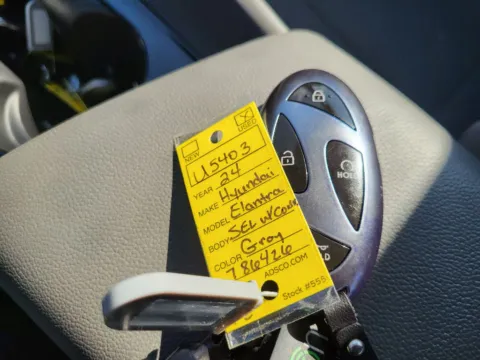 NEW
USED
U5403
YEAR 24
MAKE Hyundai
MODEL Elantra
BODY SEL W/Conv
COLOR Gray
786426
ADSCO.COM
Stock #555
HOLD